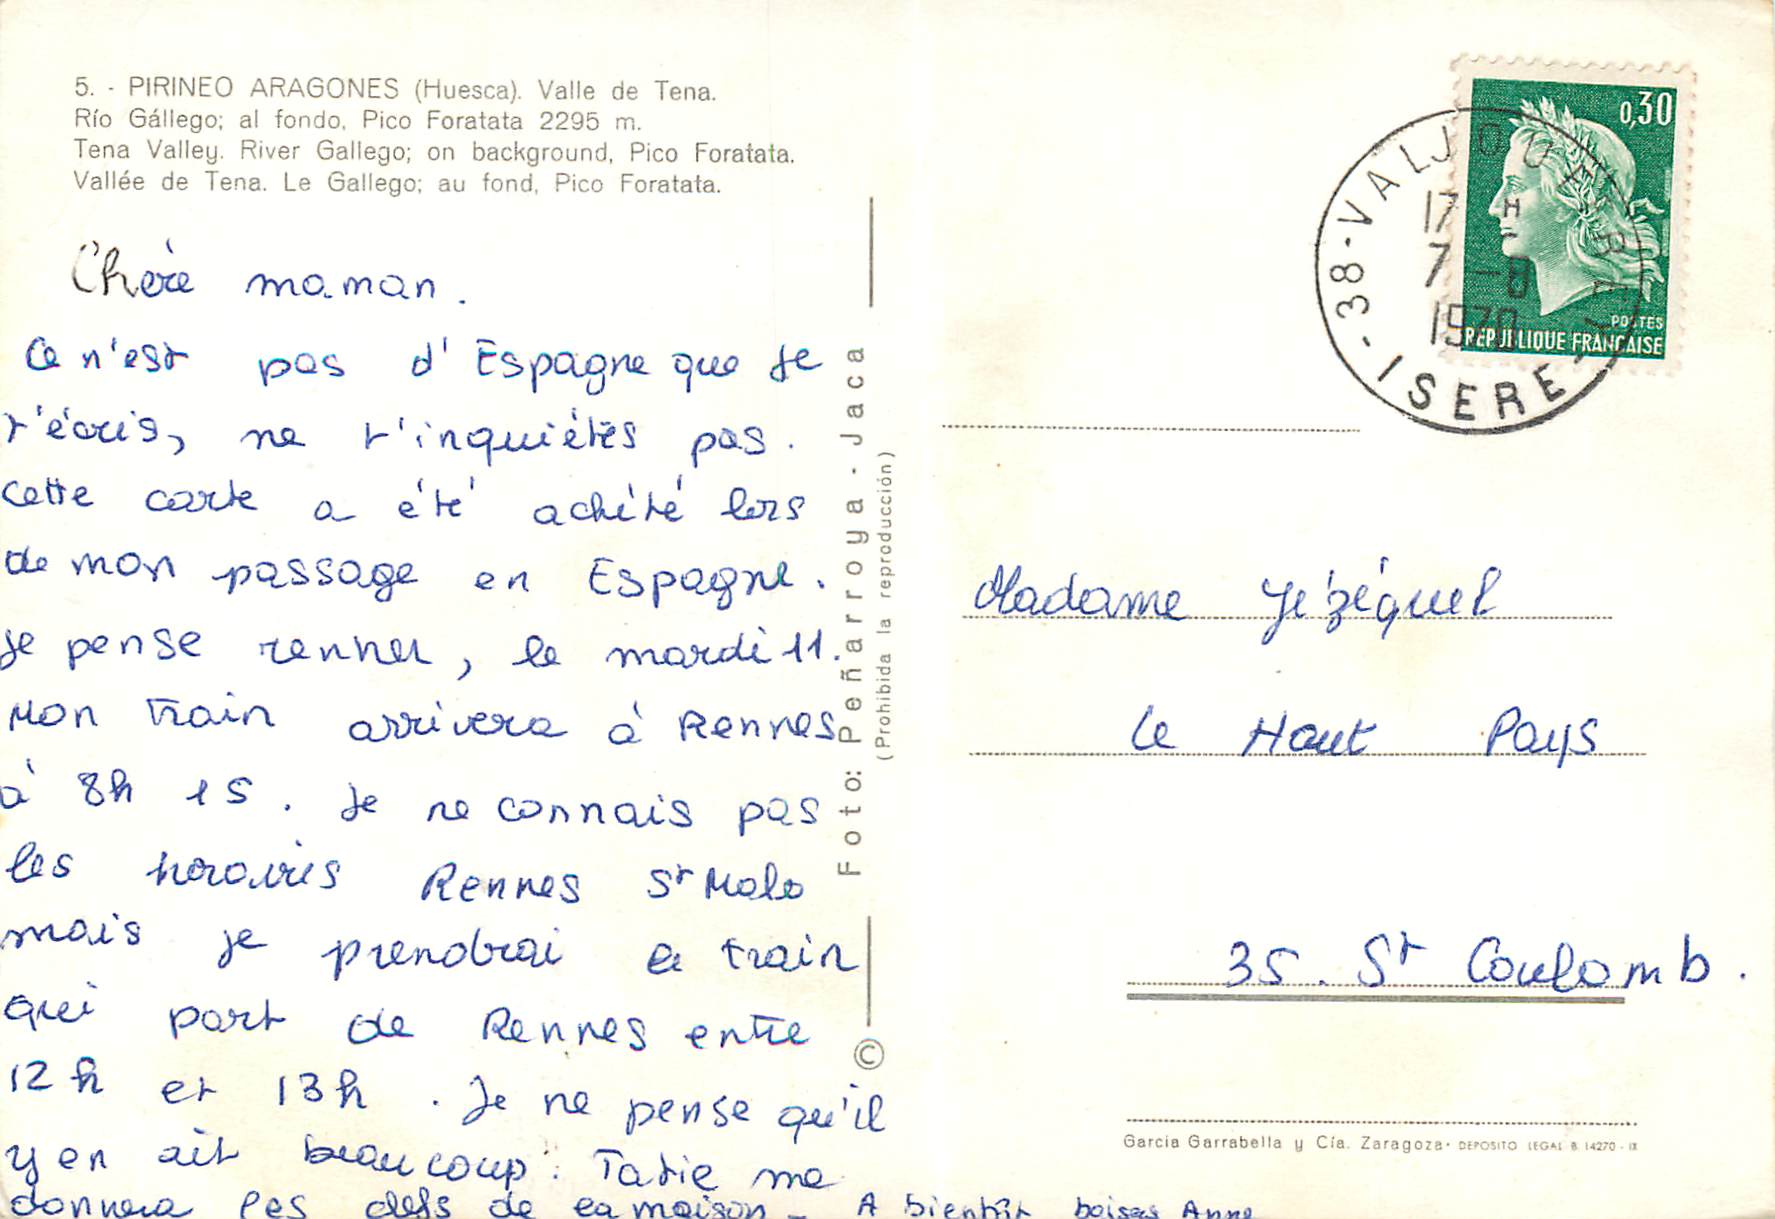 5. - PIRINEO ARAGONES (Huesca). Valle de Tena.
Río Gállego; al fondo, Pico Foratata 2295 m.
Tena Valley. River Gallego; on background, Pico Foratata.
Vallée de Tena. Le Gallego; au fond, Pico Foratata.
Chère maman.
Ce n'est pas d'Espagne que je
t'écris, ne t'inquiétes pas.
Cette carte a été achété lors
de mon passage en Espagne.
Je pense rentrer, le mardi 11.
Mon train arrivera à Rennes
à 8h 15. Je ne connais pas
les horaires Rennes St Malo
mais je prendrai le train
qui part de Rennes entre
12h et 13h. Je ne pense qu'il
y en ait beaucoup. Tatie me
donnera les clefs de la maison - A bientôt baisas Anne
Foto: Peñarroya - Jaca
(Prohibida la reproducción)
©
0,30
POSTES
RÉPUBLIQUE FRANÇAISE
38 - VALJOUFFREY - ISERE
17 H
7 - 8
1970
Madame Jézéquel
Le Haut Pays
35. St Coulomb.
Garcia Garrabella y Cía. Zaragoza - DEPOSITO LEGAL B. 14270 - IX